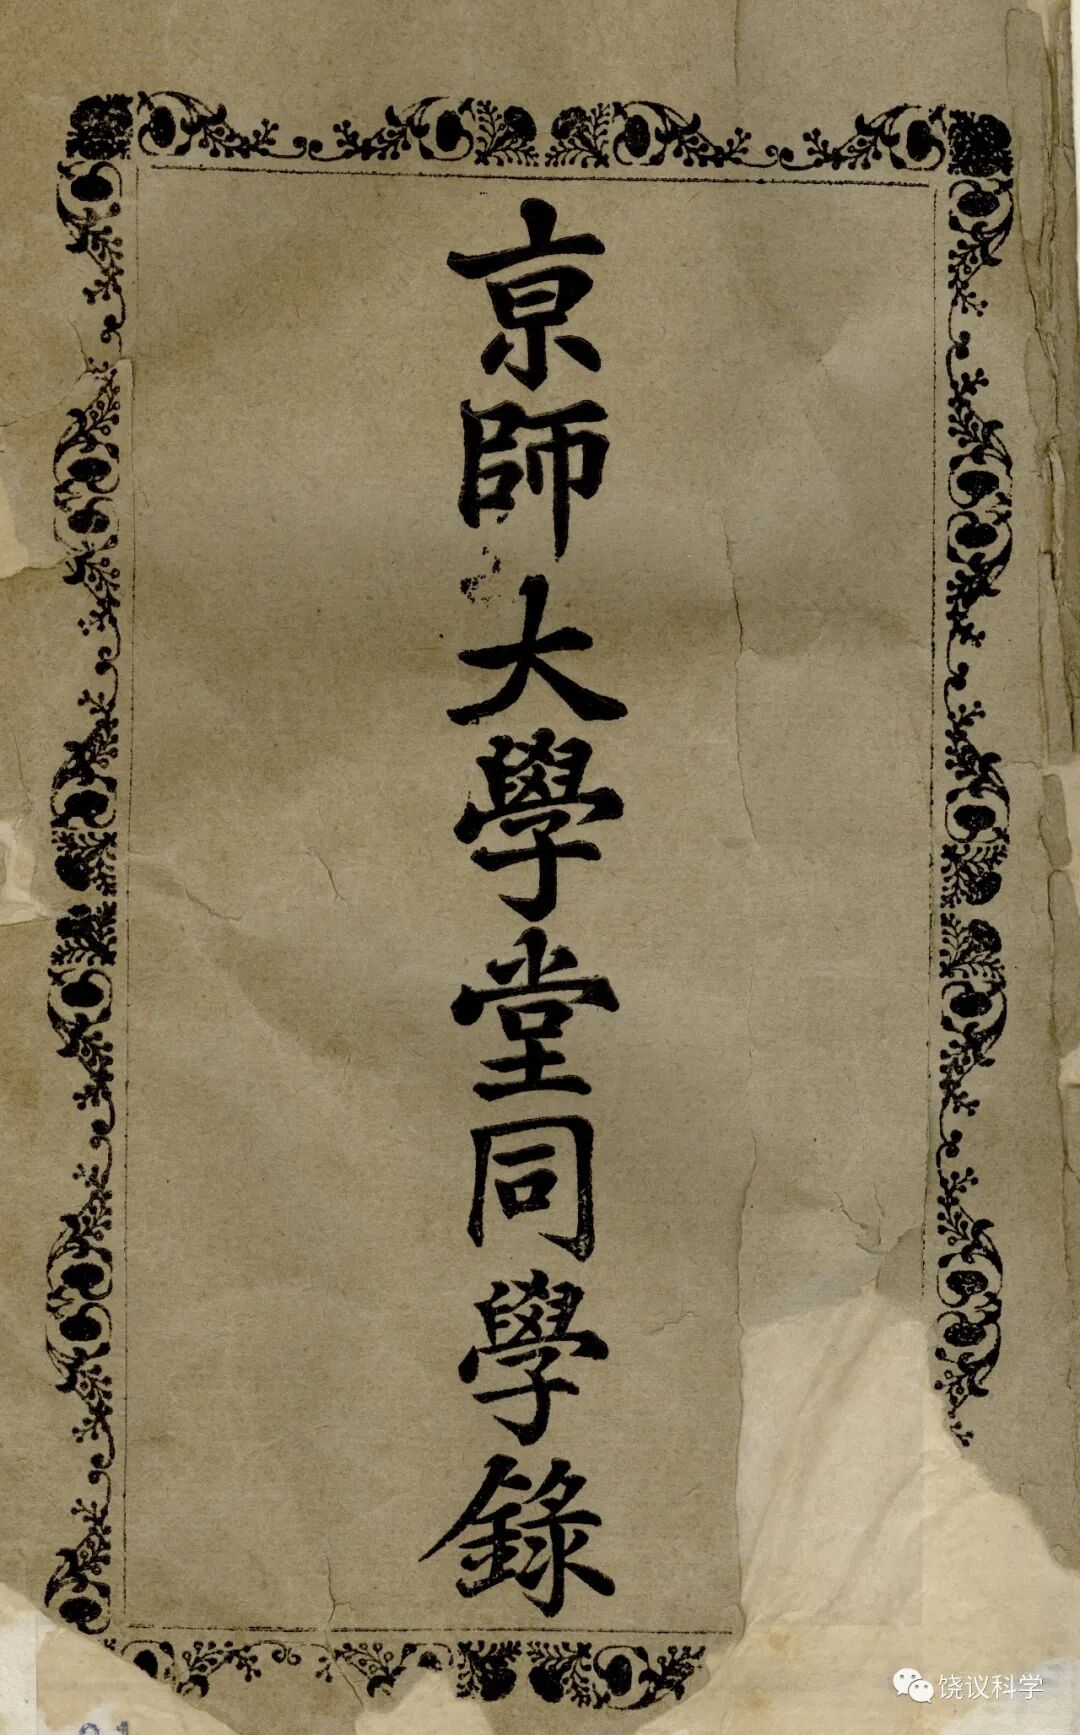 京師大學堂同學錄
饶议科学